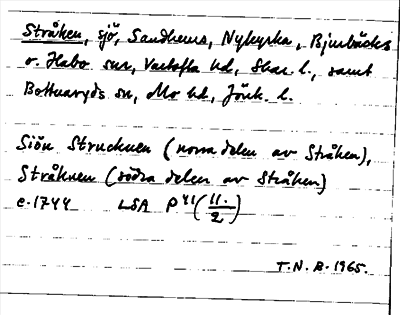 Stråken, sjö, Sandhems, Nykyrka, Bjurbäcks
o. Habo snr, Vartofta hd, Skar. l., samt
Bottnaryds sn, Mo hd, Jönk. l.
Siön Strucknen (norra delen av Stråken),
Stråknen (södra delen av Stråken)
c. 1744 LSA P 41 (11./2)
T.N.B. 1965.